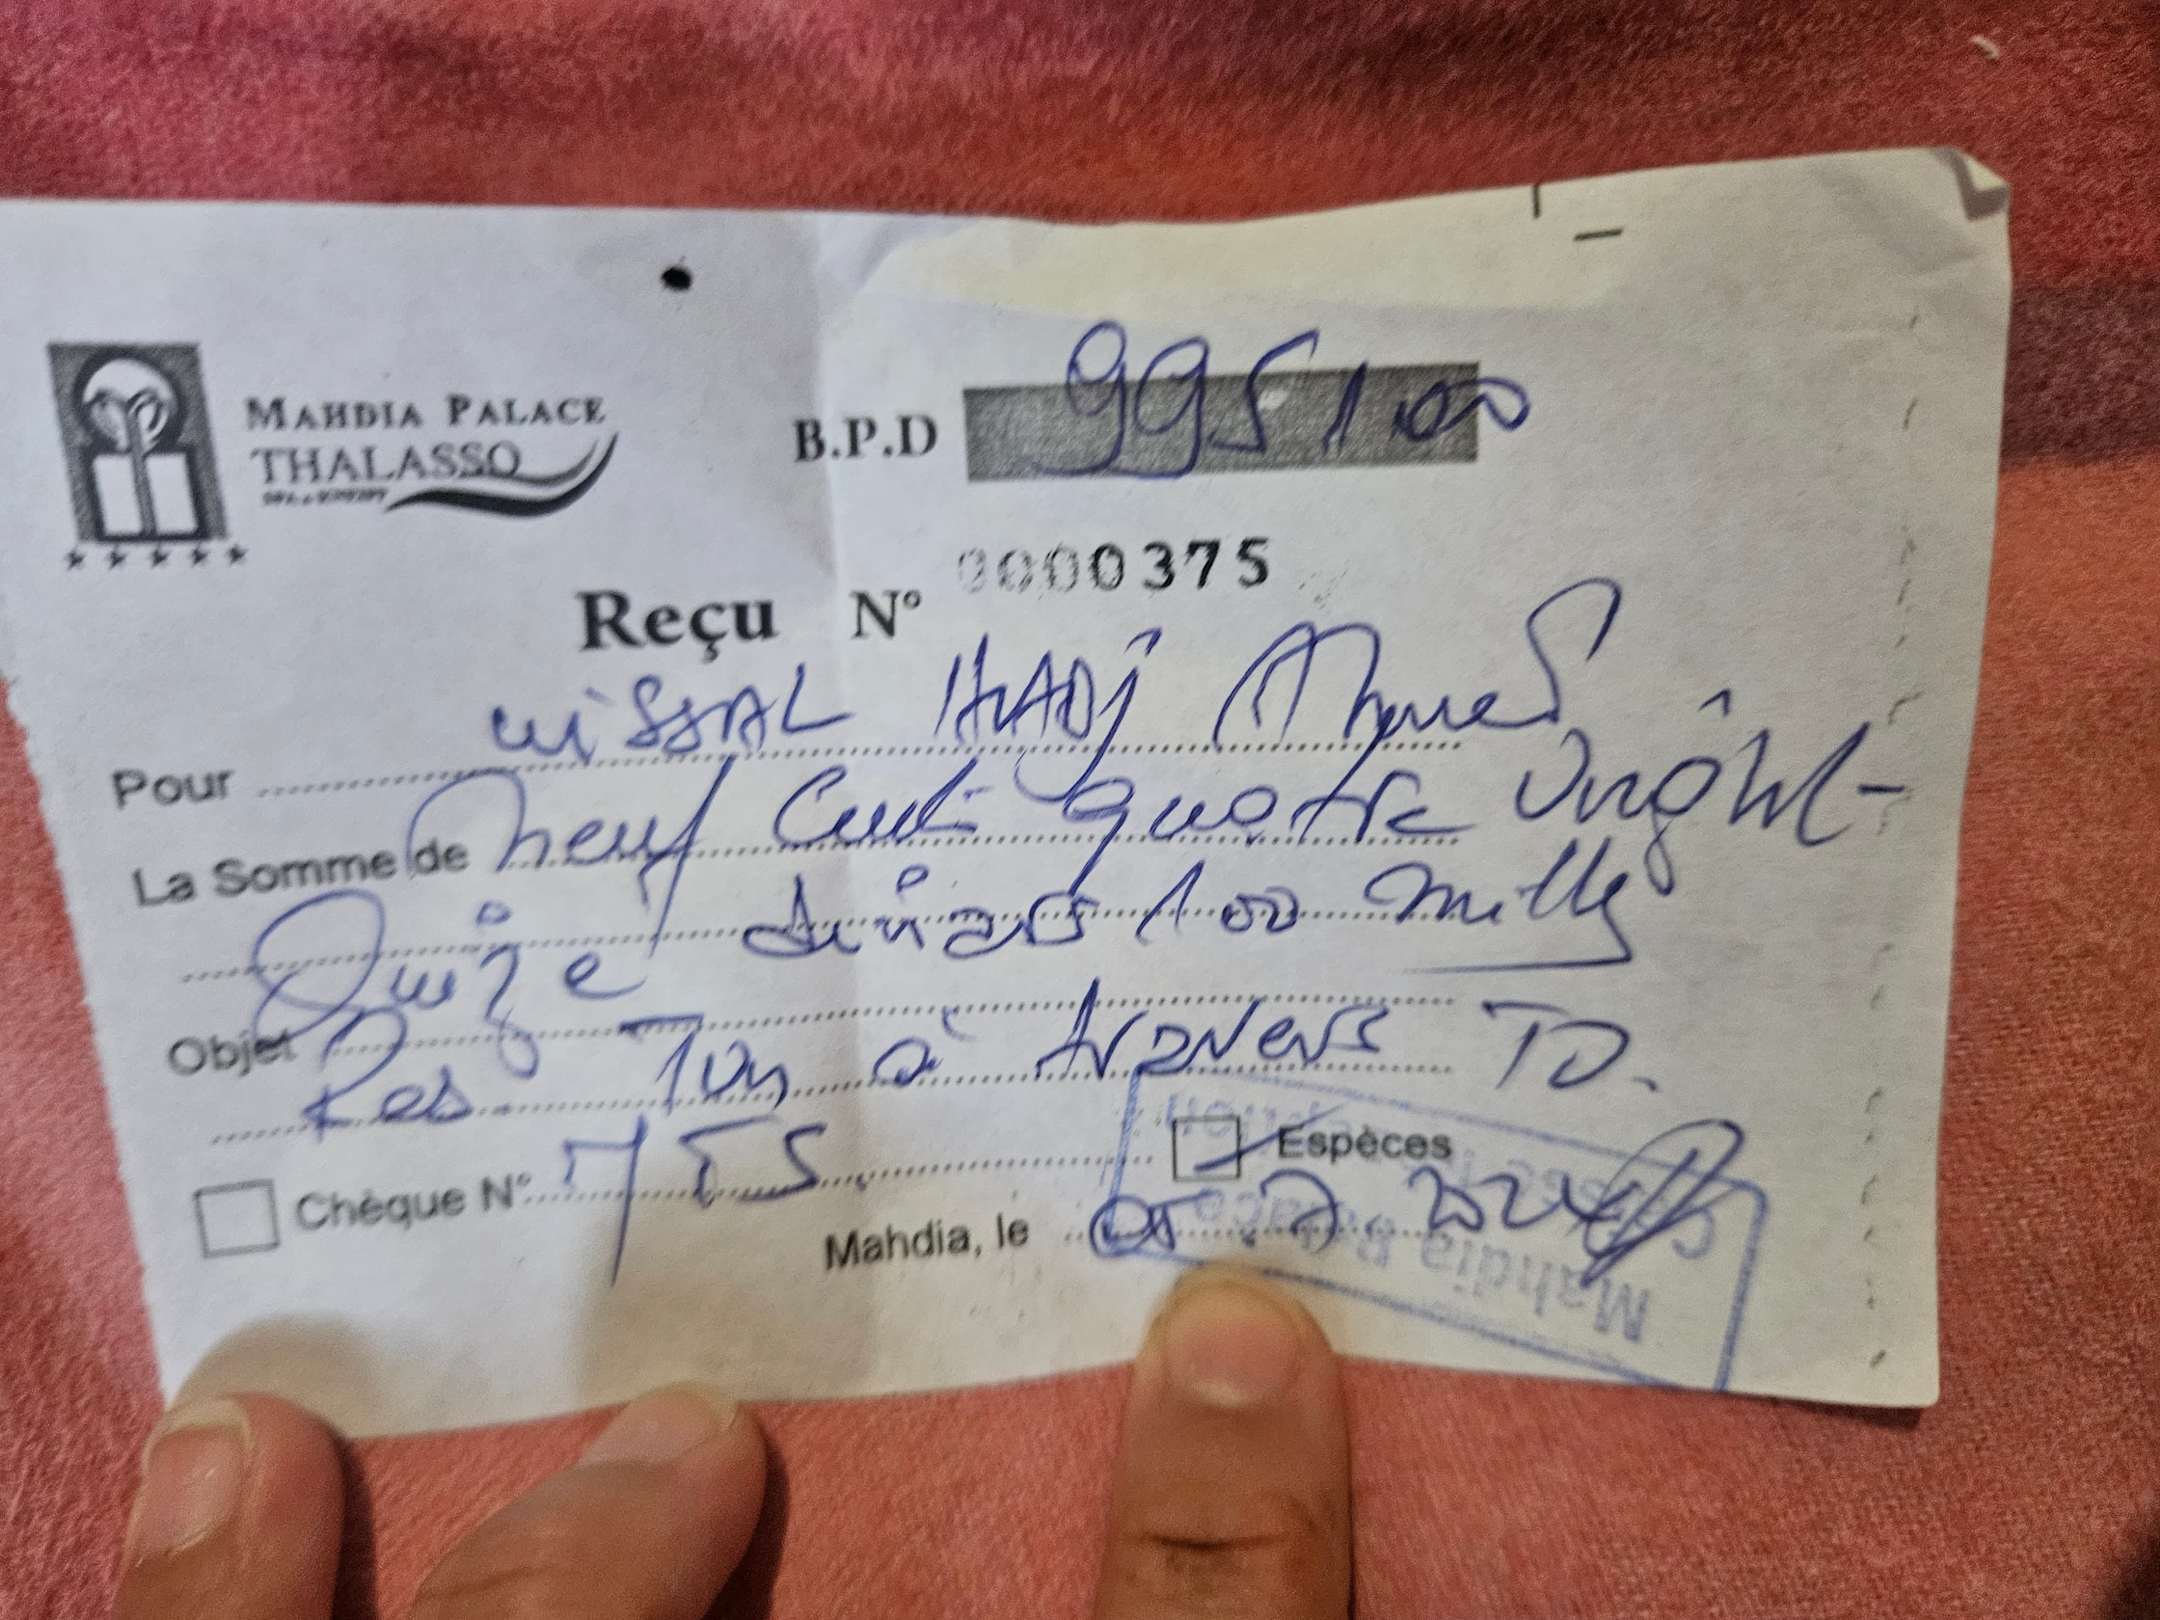 MAHDIA PALACE
THALASSO
B.P.D 995,100
Reçu N° 0000375
Pour WISSAL HADJ Ahmed
La Somme de Neuf Cent quatre vingt-
Quize dinars 100 mills
Objet
à travers TO.
Chèque N° MTS
Espèces
Mahdia, le 05 7 2024
Mahdia Palace